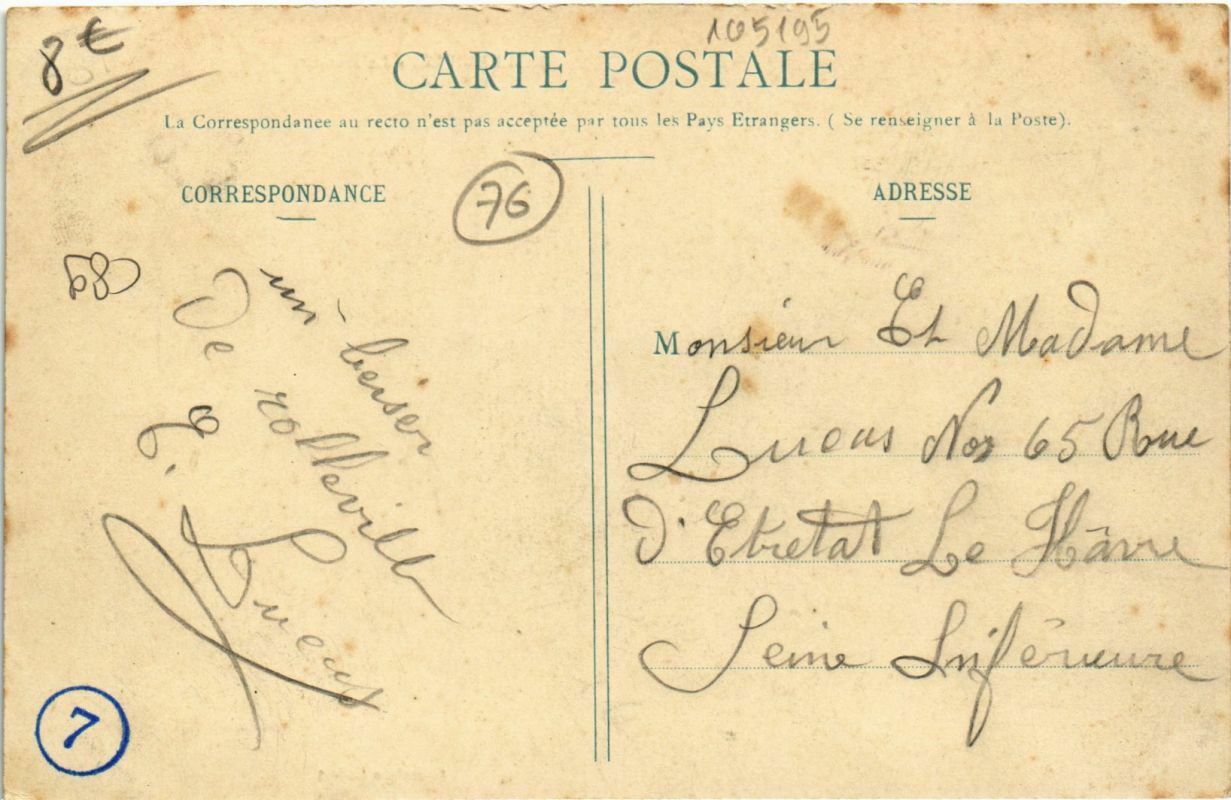 8€
105195
CARTE POSTALE
La Correspondance au recto n'est pas acceptée par tous les Pays Etrangers. ( Se renseigner à la Poste).
CORRESPONDANCE
76
ADRESSE
un baiser
De rolleville
E. Lucas
7
Monsieur Et Madame
Lucas No 65 Rue
D'Etretat Le Hâvre
Seine Inférieure